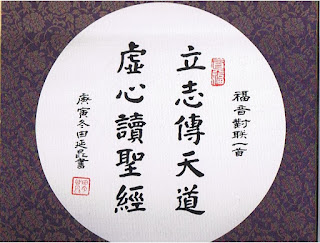 福音對联一首
立志傳天道
虛心讀聖經
庚寅冬田延昆書